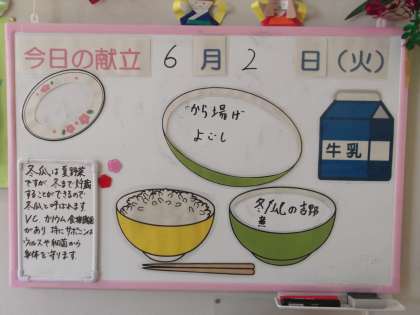 今日の献立 6月2日(火)
から揚げ
よごし
牛乳
冬瓜の吉野
冬瓜は夏野菜
ですが冬まで貯蔵
することができるので
冬瓜と呼ばれます
VC、カリウム、食物繊維
があり
サポニンは
ウイルスや細菌から
身体を守ります